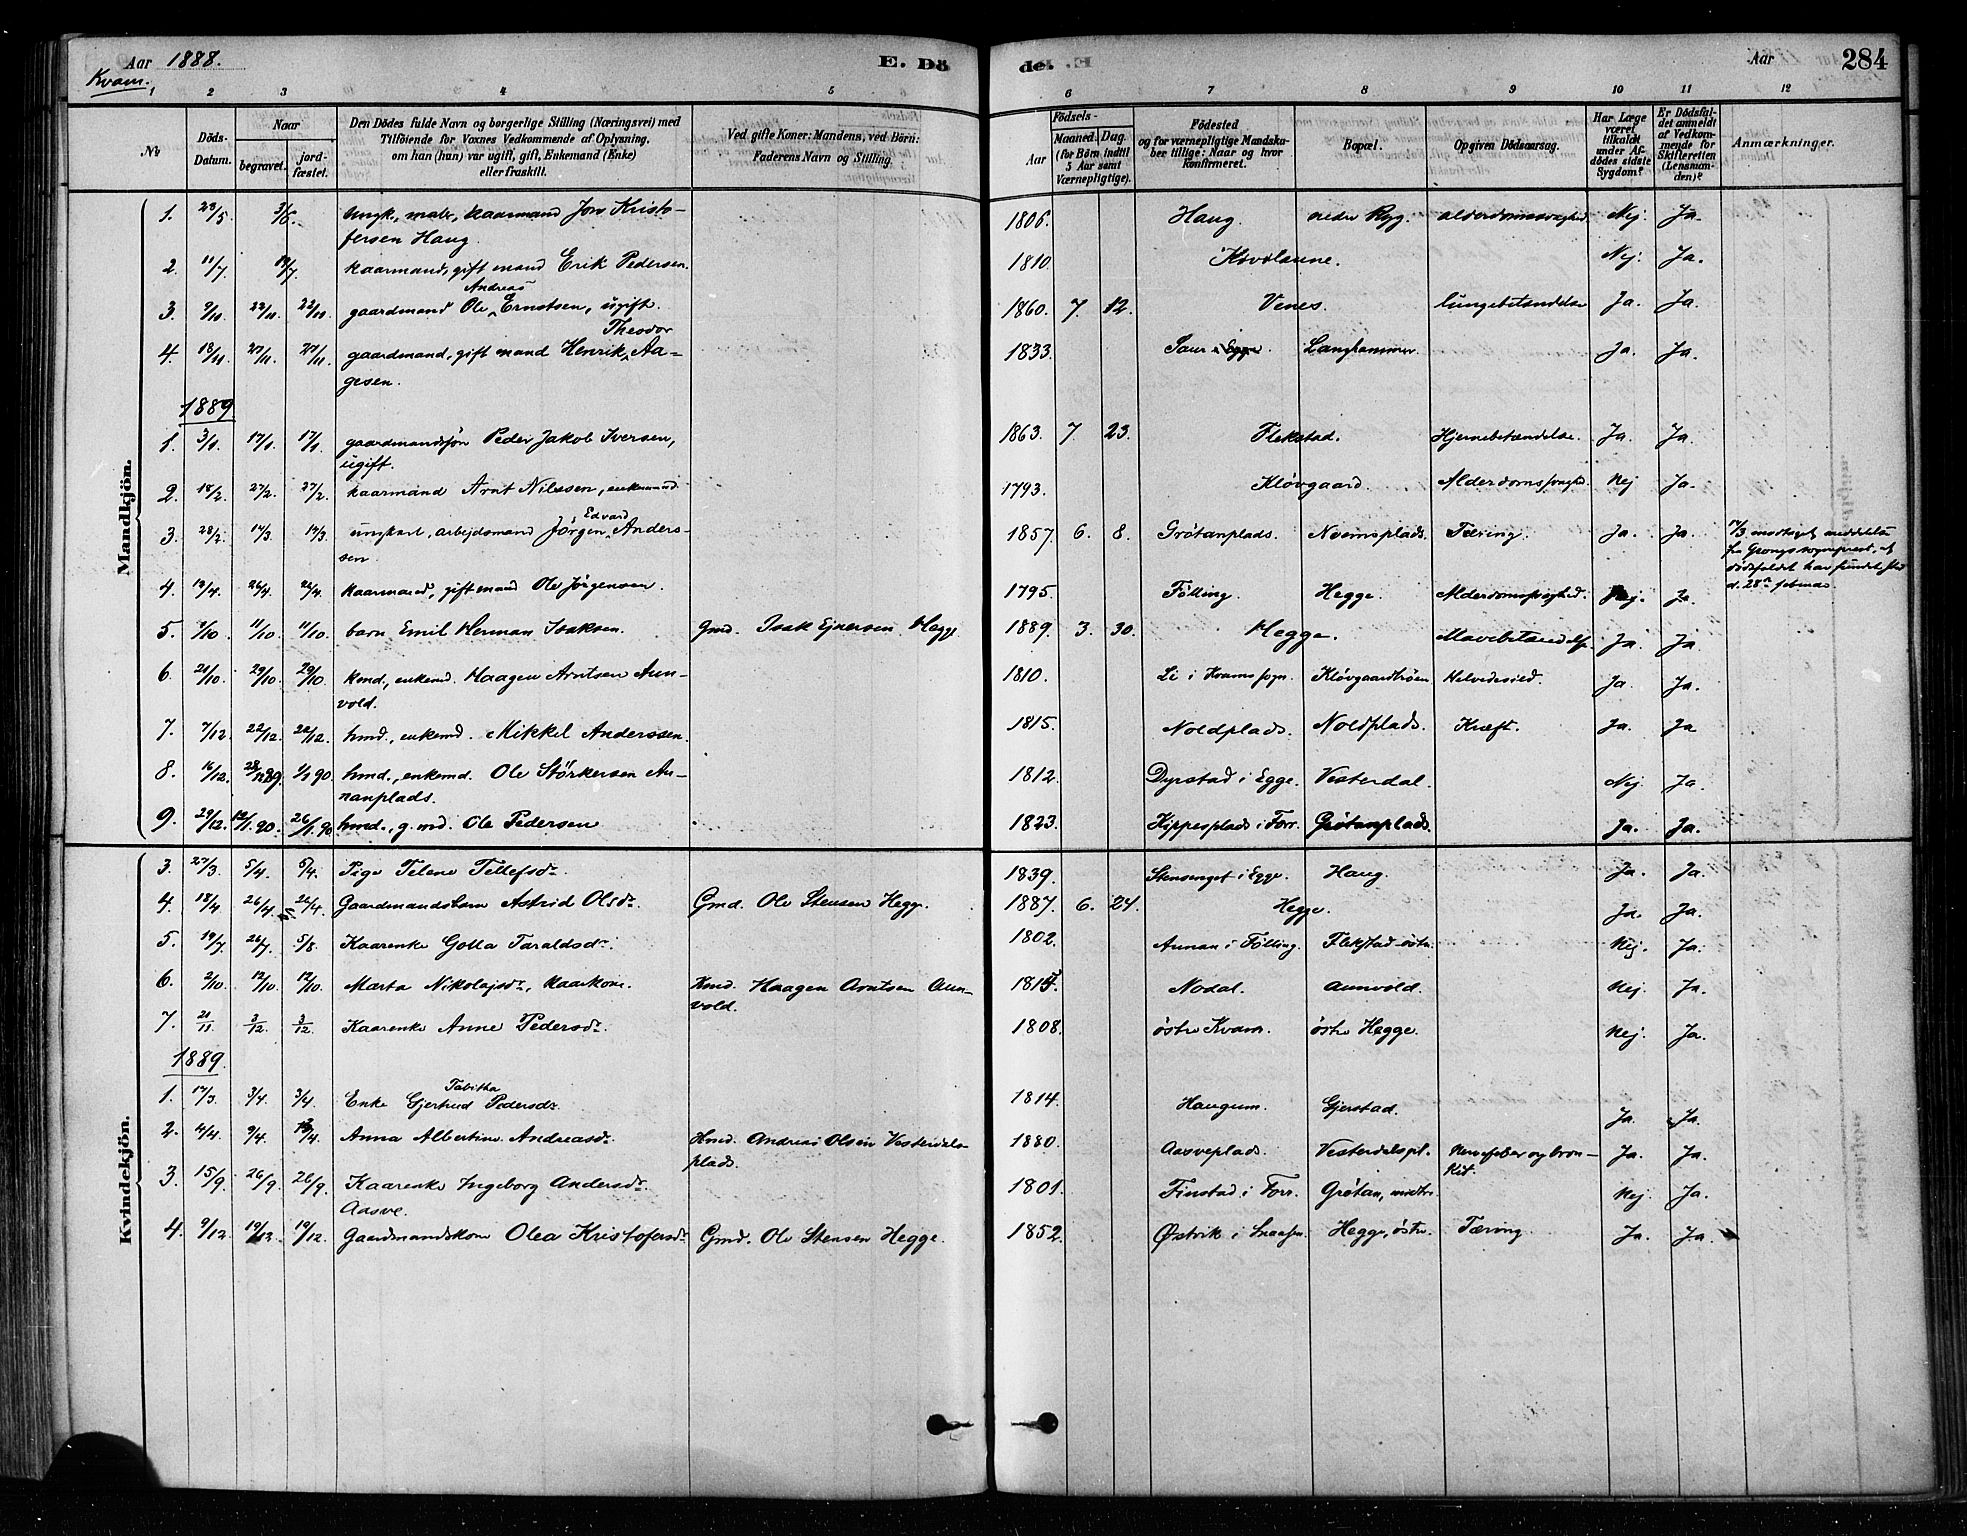 Aar 1888. E. Döde. Aar 284
Kvam.
1 2 3 4 5 6 7 8 9 10 11 12
No
Döds-Datum.
Naar
begravet. jordfæstet.
Den Dödes fulde Navn og borgerlige Stilling (Næringsvei) med
Tilföiende for Voxnes Vedkommende af Oplysning,
om han (hun) var ugift, gift, Enkemand (Enke)
eller fraskilt.
Ved gifte Koner: Mandens, ved Börn:
Faderens Navn og Stilling.
Födsels-
Aar Maaned. Dag.
(for Börn indtil
5 Aar samt
Værnepligtige).
Födested
og for værnepligtige Mandska-
ber tillige: Naar og hvor
konfirmeret.
Bopæl.
Opgiven Dödsaarsag.
Har Læge
været
tilkaldt
under Af-
dödes sidste
Sygdom?
Er Dödsfal-
det anmeldt
af Vedkom-
mende for
Skifteretten
(Lensman-
den)?
Anmærkninger.
Mandkjön.
1. 23/5 3/6. ungk., kaarmand Jon Kristo- 1806. Haug. Ryg. alderdomssvaghed Nej Ja.
fersen Haug.
2. 11/7 19/7. kaarmand, gift mand Erik Pedersen. 1810. Nej. Ja.
Andreas
3. 9/10 22/10 22/10 gaardmand Ole Ernstsen, ugift. 1860. 7. 12. Venes. lungebetændelse Ja. Ja.
Theodor
4. 18/11 27/11 27/11 gaardmand, gift mand Henrik Aa- 1833. Langhammer. Ja. Ja.
gesen.
1889
1. 3/1 17/1 17/1 gaardmandssøn Peder Jakob Iversen, 1863. 7 23. Flekstad. Hjernebetændelse. Ja. Ja.
ugift.
2. 18/2 27/2 27/2 kaarmand Arnt Nilssen, enkemand 1793. Kløvgaard. Alderdomssvaghed. Nej Ja.
Edvard
3. 28/2. 14/3. 14/3. ungkarl, arbejdsmand Jörgen Anders- 1857. 6. 8. Grötanplads. Noemsplads. Tæring. Ja. Ja. 17/3 modtaget meddelse
sen. fra Grongs sogneprest, at
dødsfaldet har fundet sted
d. 28de februar
4. 18/4. 26/4. 26/4. kaarmand, gift mand Ole Jörgensen. 1795. Følling. Hegge. Alderdomssvaghed. Nej. Ja
5. 2/10 11/10. 11/10. barn Emil Herman Isaksen. Gmd. Isak Ejnersen Hegge 1889. 3. 30. Hegge. Mavebetændelse Ja. Ja
6. 21/10. 29/10. 29/10 kmd., enkemd. Haagen Arntsen Aun- 1810. Li i Kvams sogn. Kløvgaardtrøen Helvedesild. Ja. Ja.
vold.
7. 7/12. 22/12. 22/12. hmd., enkemd. Mikkel Anderssen. 1815. Noldplads. Noldplads. Kræft. Ja. Ja
8. 16/12. 28/12 89. 1/1 90. hmd., enkemd. Ole Störkersen An- 1812. Dyrstad i Egge. Vesterdal. Nej. Ja
nanplads.
9. 29/12. 12/1. 90. 26/1. 90. hmd., g. md. Ole Pedersen 1823. Kippesplads i Forr. Grötanplads. Ja. Ja.
Kvindekjön.
3. 27/3 5/4. 5/4. Pige Telene Tellefsdr. 1839. Stensenget i Egge. Haug. Ja. Ja.
4. 18/4 26/4. 26/4. Gaardmandsbarn Astrid Olsdr. Gmd. Ole Stensen Hegge. 1887. 6. 24. Hegge. Ja. Ja.
5. 19/7. 26/7. 5/8. Kaarenke Golla Taraldsdr. 1802. Aunan i Følling. Flekstad østr. Nej. Ja.
6. 2/10. 12/10. 12/10. Marta Nikolajsdr., kaarkone. Kmd. Haagen Arntsen Aun- Nodal. Aunvold. Nej. Ja.
vold.
7. 21/11. 3/12. 3/12. Kaarenke Anne Pedersdr. 1808. østre Kvam. østre Hegge. Nej. Ja.
1889.
Tabitha
1. 17/3. 3/4. 3/4. Enke Gjertrud Pedersdr. 1814. Haugum. Gjerstad. Ja. Ja.
2. 4/4. 9/4. 13/4. Anna Albertine Andreasdr. Hmd. Andreas Olsen Vesterdals- 1880. Aasveplads. Vesterdalspl. Nervefeber og bron- Ja. Ja.
plads. kit.
3. 15/9. 26/9. 26/9. Kaarenke Ingeborg Andersdr. 1801. Finstad i Forr. Grötan, midtre Nej. Ja.
Aasve.
4. 9/12. 19/12. 19/12. Gaardmandskone Olea Kristofersdr. Gmd. Ole Stensen Hegge. 1852. Østvik i Snaasen. Hegge, østre. Tæring. Ja. Ja.